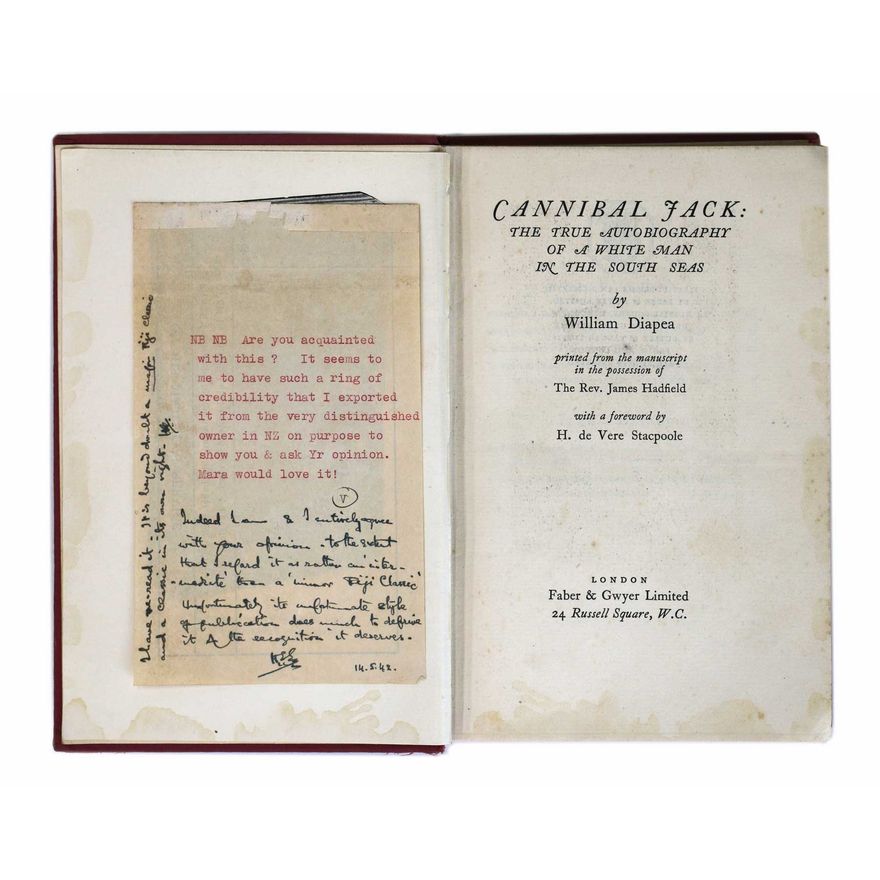 NB NB Are you acquainted
with this ? It seems to
me to have such a ring of
credibility that I exported
it from the very distinguished
owner in NZ on purpose to
show you & ask Yr opinion.
Mara would love it!
V
Indeed I am & I entirely agree
with your opinion - to the extent
that I regard it as rather an 'inter-
-mediate' than a 'minor Fiji Classic'
Unfortunately its unfortunate style
of publication does much to deprive
it of the recognition it deserves.
14.5.42.
I have re-read it - It is beyond doubt a major Fiji Classic
and a classic in its own right.
CANNIBAL JACK:
THE TRUE AUTOBIOGRAPHY
OF A WHITE MAN
IN THE SOUTH SEAS
by
William Diapea
printed from the manuscript
in the possession of
The Rev. James Hadfield
with a foreword by
H. de Vere Stacpoole
LONDON
Faber & Gwyer Limited
24 Russell Square, W.C.